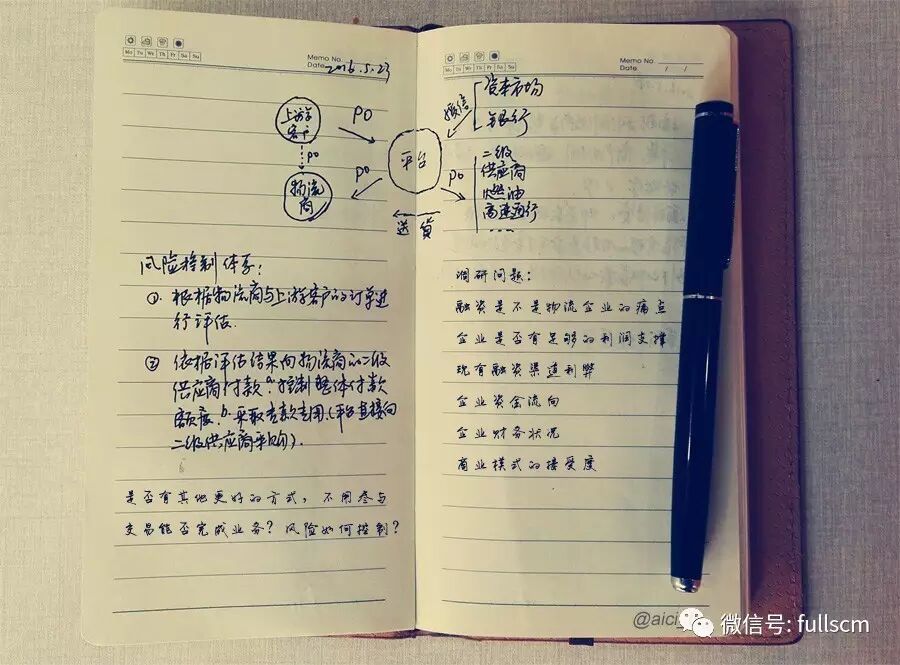 Mo Tu We Th Fr Sa Su
Memo No.
Date 2016.5.23
上游
客户
PO
PO
物流
商
PO
平台
送货
授信
资本市场
银行
PO
二级
供应商
燃油
高速通行
……
风险控制体系:
①. 根据物流商与上游客户的订单进
行评估.
② 依据评估结果向物流商的二级
供应商付款 a.控制整体付款
额度. b.采取专款专用.(平台直接向
二级供应商采购).
是否有其他更好的方式,不用参与
交易能否完成业务?风险如何控制?
Mo Tu We Th Fr Sa Su
Memo No.
Date / /
调研问题:
融资是不是物流企业的痛点
企业是否有足够的利润支撑
现有融资渠道利弊
企业资金流向
企业财务状况
商业模式的接受度
微信号: fullscm